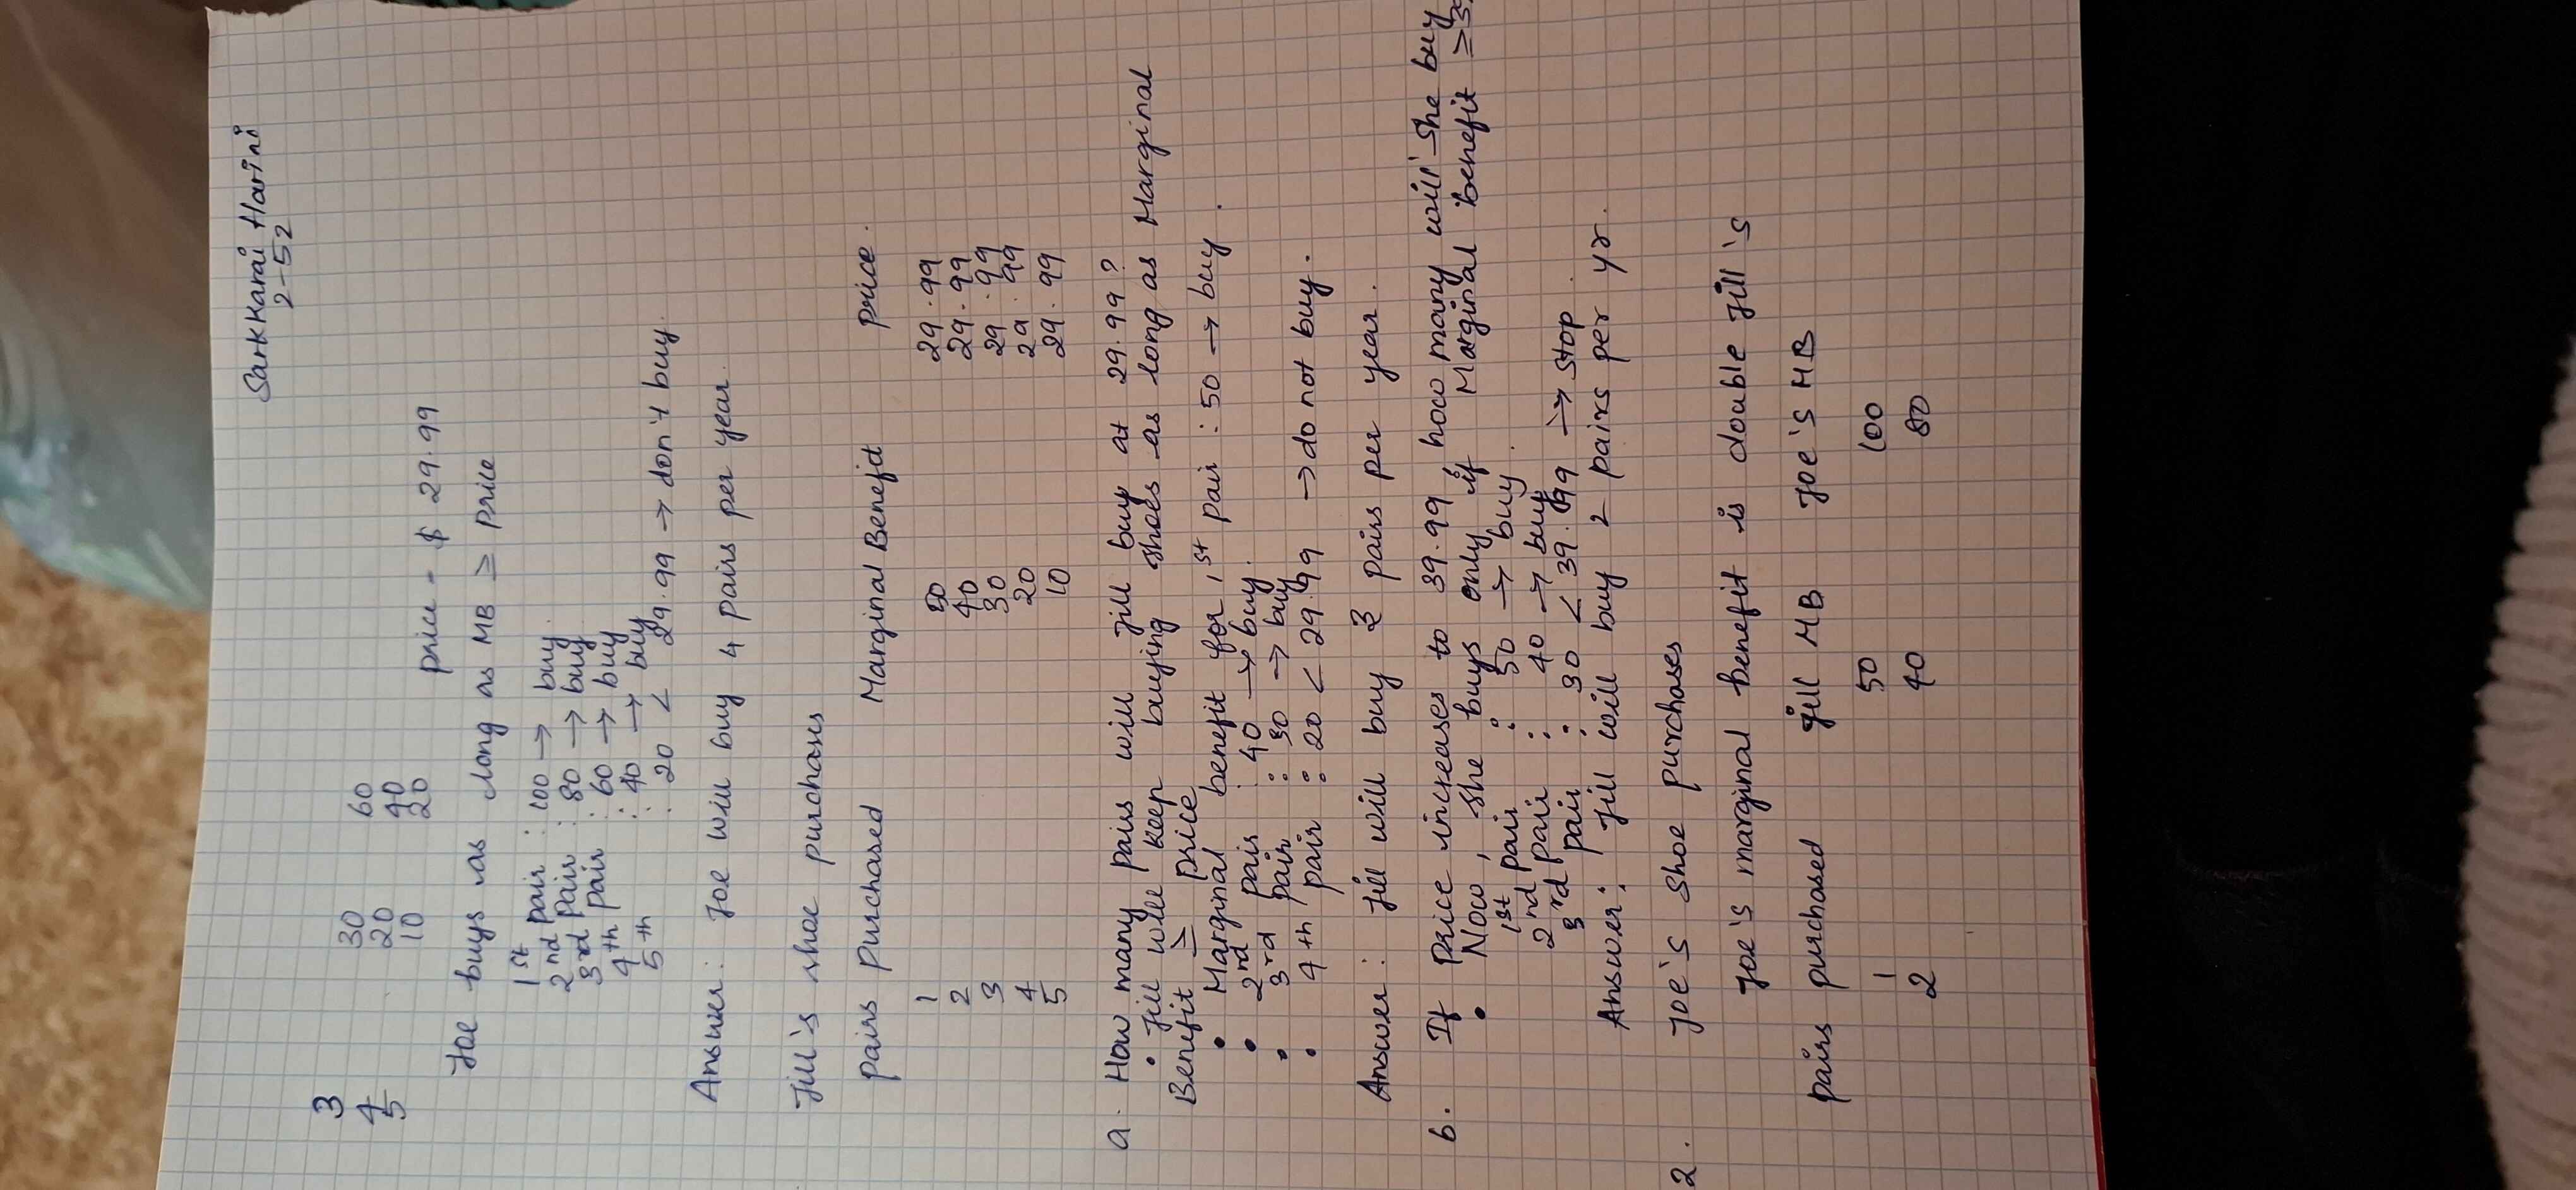 Sarkkarai Harini
2-52
3 30 60
4 20 40
5 10 20
price - $ 29.99
Joe buys as long as MB ≥ price
1st pair : 100 → buy.
2nd pair : 80 → buy
3rd pair : 60 → buy
4th : 40 → buy
5th : 20 < 29.99 → don't buy.
Answer: Joe will buy 4 pairs per year.
Jill's shoe purchases
pairs purchased Marginal Benefit price.
1 50 29.99
2 40 29.99
3 30 29.99
4 20 29.99
5 10 29.99
a. How many pairs will Jill buy at 29.99?
• Jill will keep buying shoes as long as Marginal
Benefit ≥ price
• Marginal benefit for 1st pair : 50 → buy.
• 2nd pair : 40 → buy.
• 3rd pair : 30 → buy
• 4th pair : 20 < 29.99 → do not buy.
Answer : Jill will buy 3 pairs per year.
b. If price increases to 39.99, how many will she buy
• Now, she buys only if Marginal benefit ≥
1st pair : 50 → buy.
2nd pair : 40 → buy
3rd pair : 30 < 39.99 → stop.
Answer: Jill will buy 2 pairs per yr.
2. Joe's shoe purchases
Joe's marginal benefit is double Jill's
pairs purchased Jill MB Joe's MB
1 50 100
2 40 80